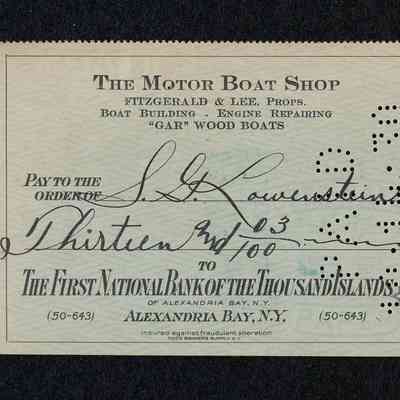 THE MOTOR BOAT SHOP
FITZGERALD & LEE, PROPS.
BOAT BUILDING - ENGINE REPAIRING
"GAR" WOOD BOATS
PAY TO THE
ORDER OF S. G. Lowenstein
Thirteen and 03/100
TO
THE FIRST NATIONAL BANK OF THE THOUSAND ISLANDS
OF ALEXANDRIA BAY, N.Y.
(50-643) ALEXANDRIA BAY, N.Y. (50-643)
insured against fraudulent alteration